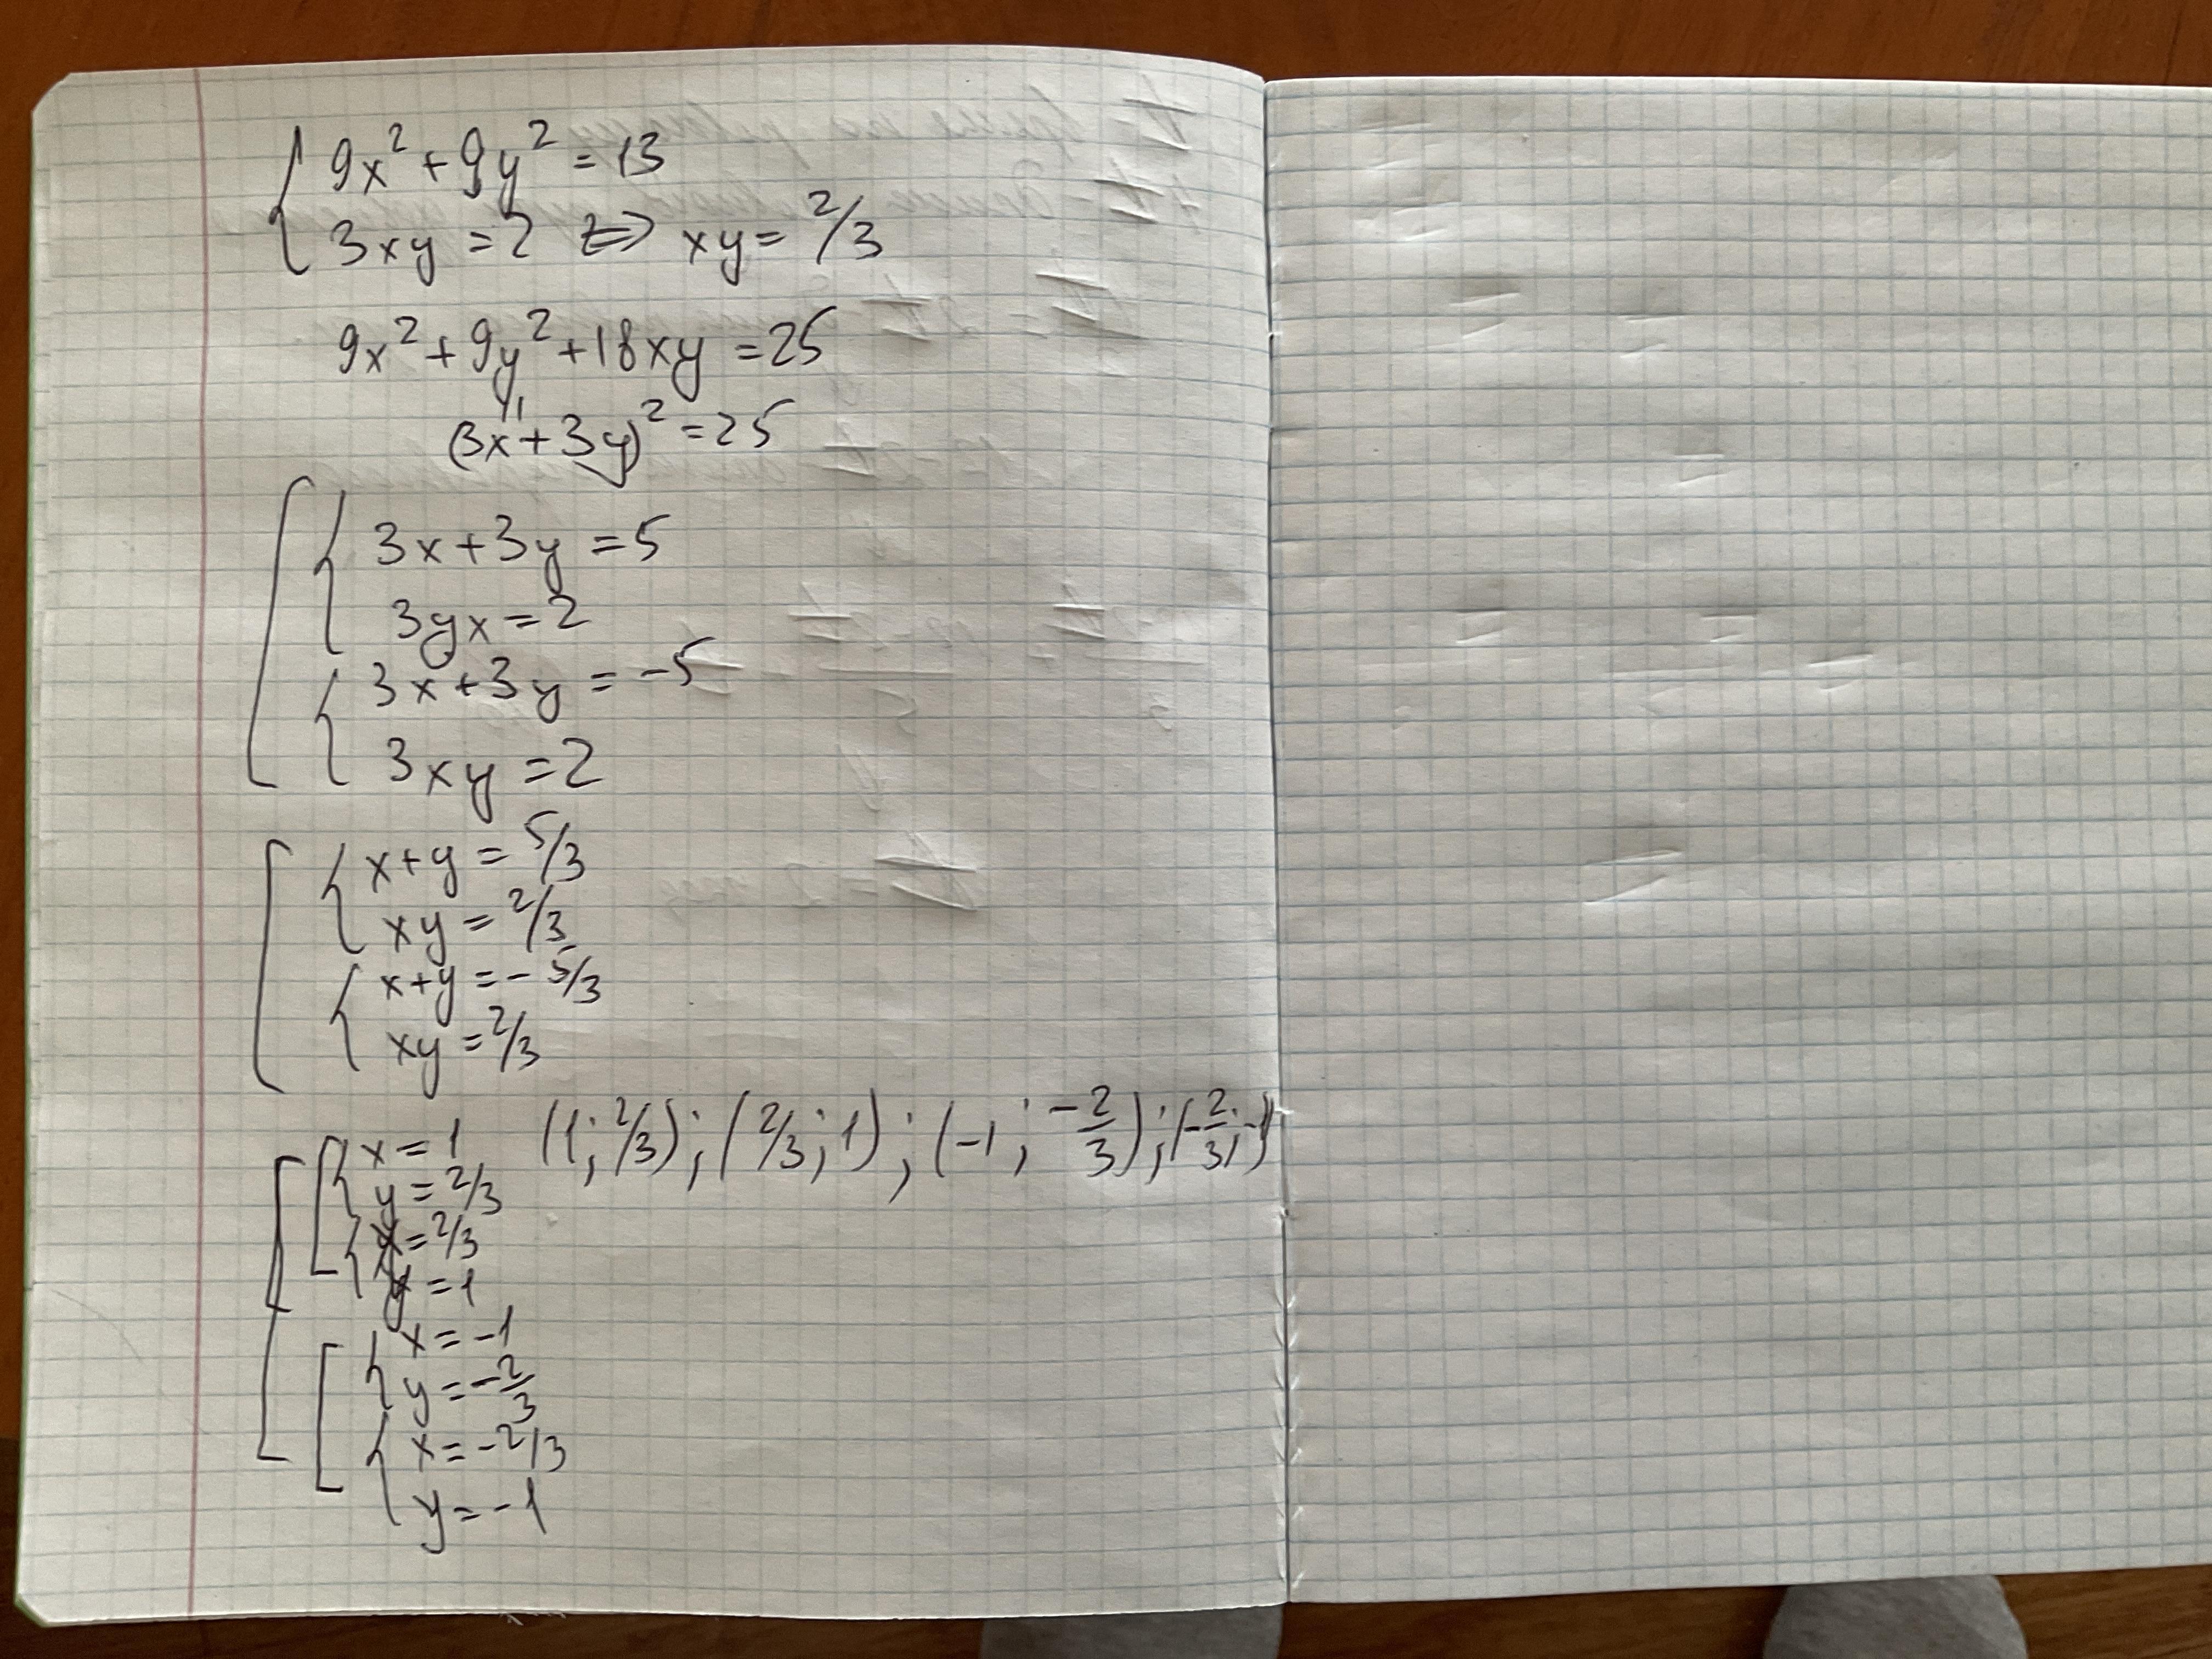 9x² + 9y² = 13
3xy = 2 ⇔ xy = 2/3
9x² + 9y² + 18xy = 25
(3x + 3y)² = 25
3x + 3y = 5
3yx = 2
3x + 3y = -5
3xy = 2
x + y = 5/3
xy = 2/3
x + y = - 5/3
xy = 2/3
x = 1 (1; 2/3); (2/3; 1); (-1; -2/3); (-2/3; -1)
y = 2/3
x = 2/3
y = 1
x = -1
y = -2/3
x = -2/3
y = -1